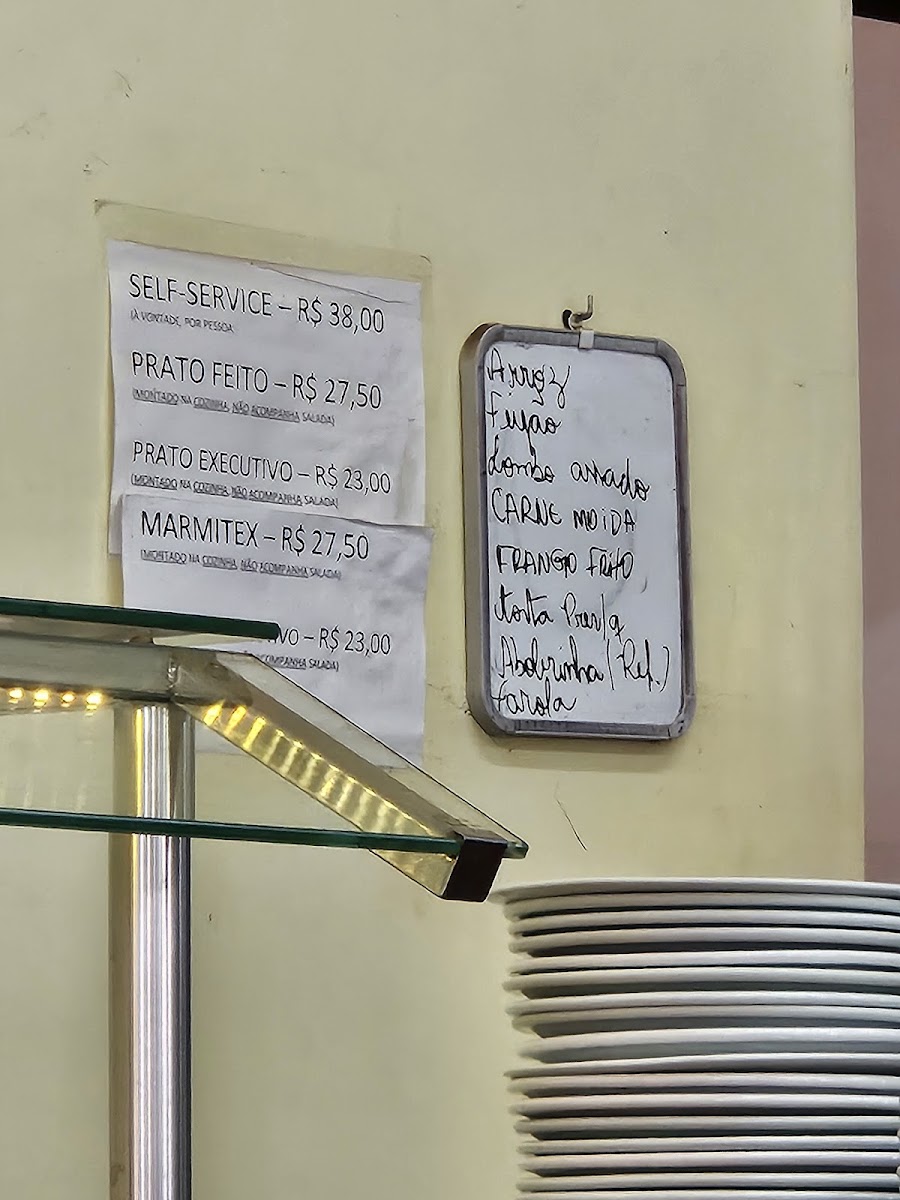 SELF-SERVICE – R$ 38,00
(À VONTADE, POR PESSOA
PRATO FEITO – R$ 27,50
(MONTADO NA COZINHA, NÃO ACOMPANHA SALADA)
PRATO EXECUTIVO – R$ 23,00
(MONTADO NA COZINHA, NÃO ACOMPANHA SALADA)
MARMITEX – R$ 27,50
(MONTADO NA COZINHA, NÃO ACOMPANHA SALADA)
IVO – R$ 23,00
ACOMPANHA SALADA)
Arroz
Feijão
Lombo assado
CARNE MOIDA
FRANGO FRITO
torta
Abobrinha (Ref.)
farofa